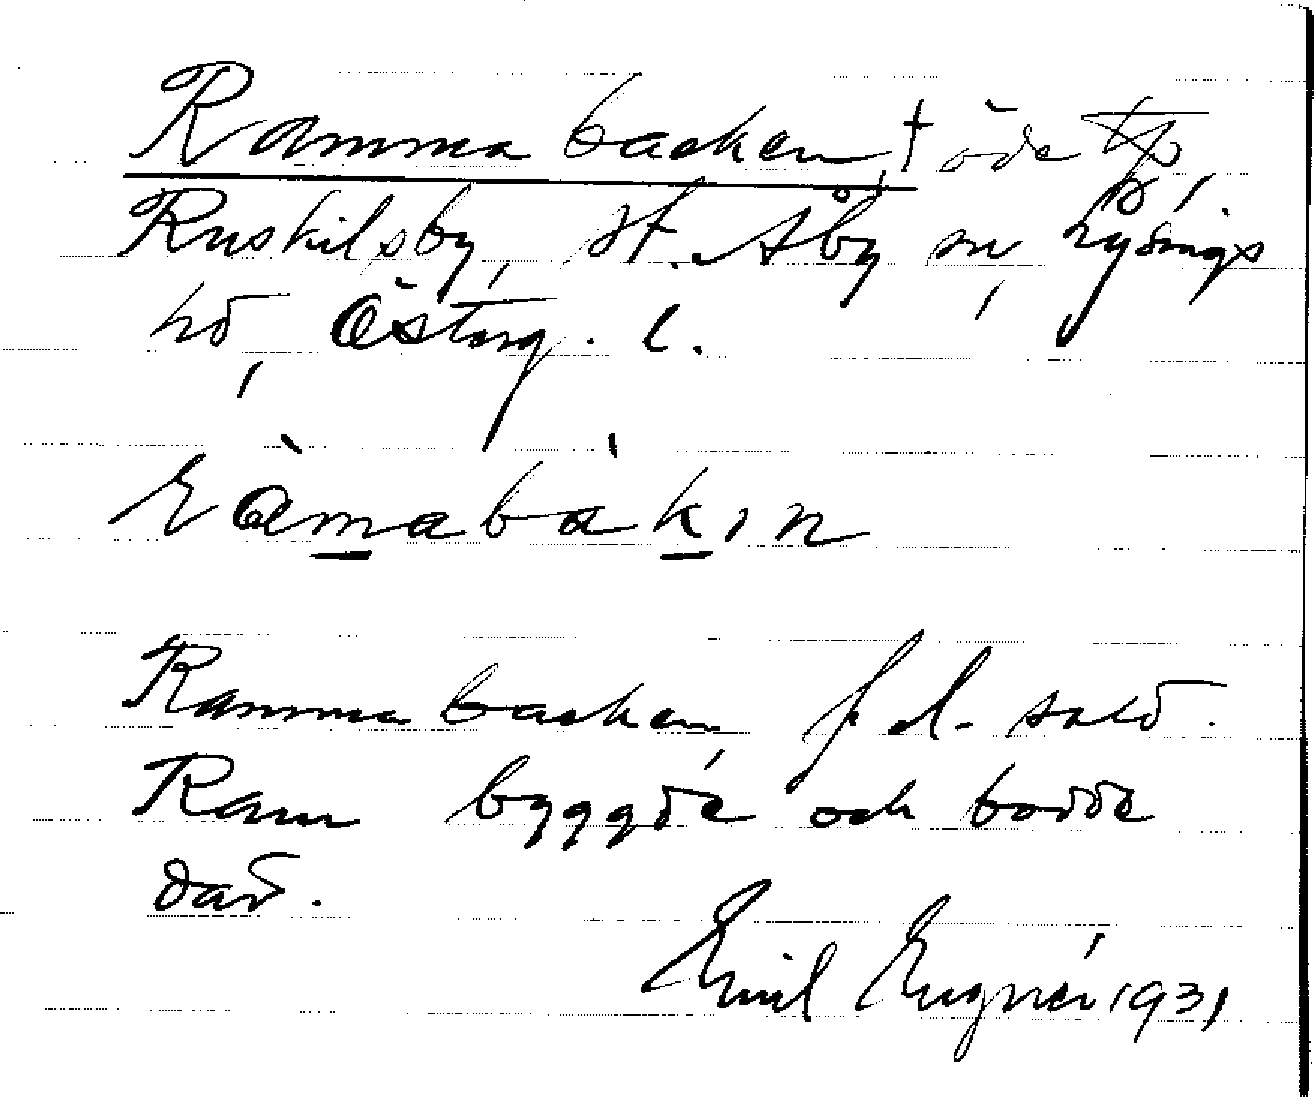 Rammabacken, † öde tp
Ruskilsby, St. Åby sn, Lysings
hd, Östurg. l.
ràmabákın
Rammabacken, f d. sold.
Ram byggde och bodde
där.
Emil Eugnér 1931